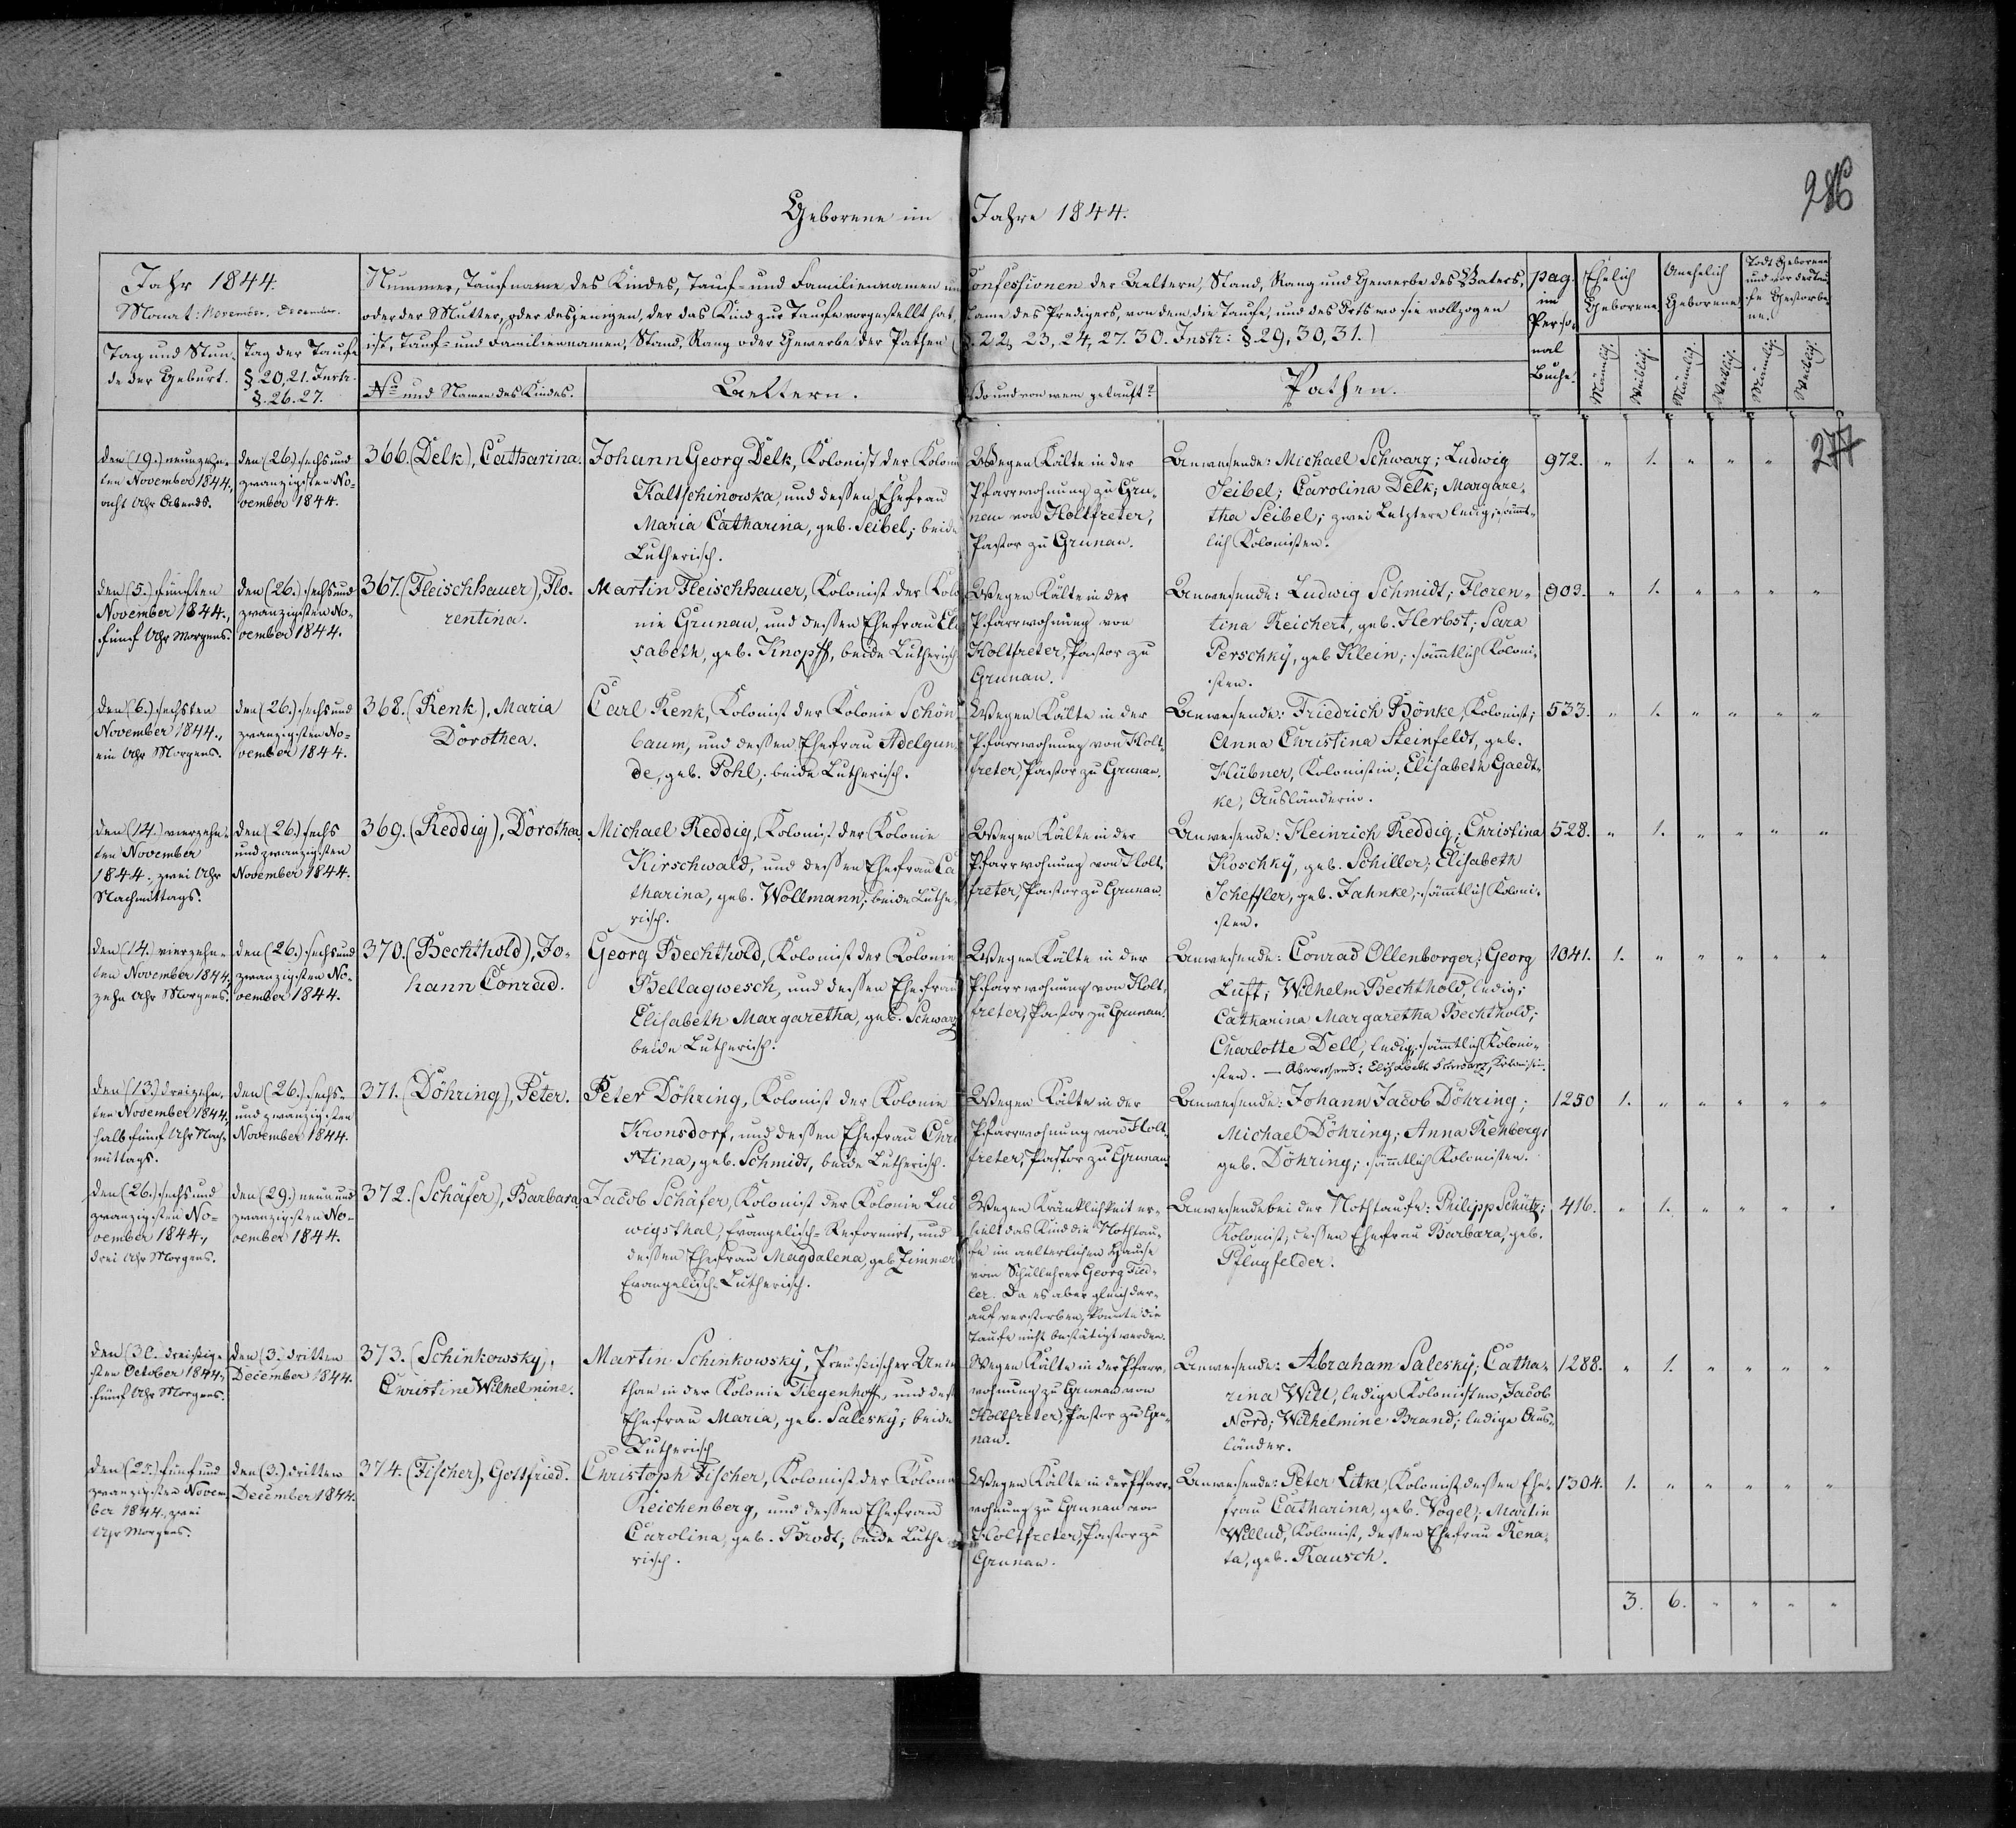 286
Geborene im Jahre 1844.
Jahr 1844.
Monat: November. December.
Tag und Stun-
de der Geburt.
Tag der Taufe
§ 20, 21. Instr.
§. 26. 27.
Nummer, Taufname des Kindes, Tauf- und Familiennamen und Confessionen der Aeltern, Stand, Rang und Gewerbe des Vaters,
oder der Mutter, oder desjenigen, der das Kind zur Taufe vorgestellt hat, Name des Predigers, von dem die Taufe, und des Orts wo sie vollzogen
ist, Tauf- und Familiennamen, Stand, Rang oder Gewerbe der Pathen (§. 22, 23, 24, 27. 30. Instr: §. 29, 30, 31.)
No und Namen des Kindes.
Aeltern.
Wo und von wem getauft?
Pathen.
pag.
im
Perso-
nal
Buche.
Ehelich
Geborene
Unehelich
Geborene
Todt Geborene
und vor der Tau-
fe Gestorbe-
ne.
Männlich.
Weiblich.
Männlich.
Weiblich.
Männlich.
Weiblich.
277
den (19.) neunzehn-
ten November 1844,
acht Uhr Abends.
den (26.) sechs und
zwanzigsten No-
vember 1844.
366. (Delk), Catharina.
Johann Georg Delk, Kolonist der Kolonie
Kaltschinowka, und dessen Ehefrau
Maria Catharina, geb. Seibel; beide
Lutherisch.
Wegen Kälte in der
Pfarrwohnung zu Gru-
nau von Holtfreter,
Pastor zu Grunau.
Anwesende: Michael Schwarz; Ludwig
Seibel; Carolina Delk; Margare-
tha Seibel; zwei Letztere ledig; sämmt-
lich Kolonisten.
972. " 1. " " "
den (5.) fünften
November 1844.,
fünf Uhr Morgens.
den (26.) sechs und
zwanzigsten No-
vember 1844.
367. (Fleischhauer), Flo-
rentina.
Martin Fleischhauer, Kolonist der Kolo
nie Grunau, und dessen Ehefrau Eli
sabeth, geb. Knopff, beide Lutherisch
Wegen Kälte in der
Pfarrwohnung von
Holtfreter, Pastor zu
Grunau.
Anwesende: Ludwig Schmidt; Floren-
tina Reichert, geb. Herbst; Sara
Perschkÿ, geb Klein; sämmtlich Koloni-
sten.
903. " 1. " " " "
den (6.) sechsten
November 1844.,
ein Uhr Morgens.
den (26.) sechs und
zwanzigsten No-
vember 1844.
368. (Renk), Maria
Dorothea.
Carl Renk, Kolonist der Kolonie Schön
baum, und dessen Ehefrau Adelgun-
de, geb. Pohl; beide Lutherisch.
Wegen Kälte in der
Pfarrwohnung von Holt-
freter, Pastor zu Grunau.
Anwesende: Friedrich Bönke, Kolonist;
Anna Christina Steinfeldt, geb.
Hübner, Kolonistin; Elisabeth Gaedt-
ke, Ausländerin.
533. " 1. " " " "
den (14.) vierzehn-
ten November
1844., zwei Uhr
Nachmittags.
den (26.) sechs
und zwanzigsten
November 1844.
369. (Reddig), Dorothea.
Michael Reddig, Kolonist der Kolonie
Kirschwald, und dessen Ehefrau Ca
tharina, geb. Wollmann; beide Luthe-
risch.
Wegen Kälte in der
Pfarrwohnung von Holt-
freter, Pastor zu Grunau.
Anwesende: Heinrich Reddig; Christina
Koschkÿ, geb. Schiller; Elisabeth
Scheffler, geb. Jahnke; sämmtlich Koloni-
sten.
528. " 1. " " " "
den (14.) vierzehn-
ten November 1844,
zehn Uhr Morgens.
den (26.) sechs und
zwanzigsten No-
vember 1844.
370. (Bechthold), Jo-
hann Conrad.
Georg Bechthold, Kolonist der Kolonie
Bellagwesch, und dessen Ehefrau
Elisabeth Margaretha, geb. Schwarz
beide Lutherisch.
Wegen Kälte in der
Pfarrwohnung von Holt-
freter, Pastor zu Grunau.
Anwesende: Conrad Ollenborger; Georg
Luft; Wilhelm Bechthold, ledig;
Catharina Margaretha Bechthold;
Charlotte Dell, ledig; sämmtlich Koloni-
sten. — Abwesend: Elisabeth Schwarz, Kolonistin.
1041. 1. " " " " "
den (13.) dreizehn-
ten November 1844,
halb fünf Uhr Nach-
mittags.
den (26.) sechs-
und zwanzigsten
November 1844.
371. (Döhring), Peter.
Peter Döhring, Kolonist der Kolonie
Kronsdorf, und dessen Ehefrau Chri
stina, geb. Schmidt, beide Lutherisch.
Wegen Kälte in der
Pfarrwohnung von Holt-
freter, Pastor zu Grunau.
Anwesende: Johann Jacob Döhring;
Michael Döhring; Anna Rehberg,
geb. Döhring; sämmtlich Kolonisten.
1250 1. " " " " "
den (26.) sechs und
zwanzigsten No-
vember 1844.,
drei Uhr Morgens.
den (29.) neun und
zwanzigsten No-
vember 1844.
372. (Schäfer), Barbara.
Jacob Schäfer, Kolonist der Kolonie Lud
wigsthal, Evangelisch-Reformirt, und
dessen Ehefrau Magdalena, geb. Zimmer
Evangelisch-Lutherisch.
Wegen Kränklichkeit er-
hielt das Kind die Nothtau-
fe im aelterlichen Hause
vom Schullehrer Georg Fied-
ler. Da es aber gleich dar-
auf verstorben, konnte die
Taufe nicht bestätigt werden.
Anwesende bei der Nothtaufe: Philipp Schütz;
Kolonist; dessen Ehefrau Barbara, geb.
Pflugfelder.
416. " 1. " " " "
den (30.) dreißig-
sten October 1844,
fünf Uhr Morgens.
den (3.) dritten
December 1844.
373. (Schinkowsky),
Christine Wilhelmine.
Martin Schinkowsky, Preussischer Unter
than in der Kolonie Tiegenhoff, und dess
Ehefrau Maria, geb. Saleskÿ; beide
Lutherisch
Wegen Kälte in der Pfarr-
wohnung zu Grunau von
Holtfreter, Pastor zu Gru-
nau.
Anwesende: Abraham Saleskÿ; Catha-
rina Will, ledige Kolonisten, Jacob
Nord; Wilhelmine Brand; ledige Aus-
länder.
1288. " 1. " " " "
den (25.) fünf und
zwanzigsten Novem-
ber 1844., zwei
Uhr Morgens.
den (3.) dritten
December 1844.
374. (Fischer), Gottfried.
Christoph Fischer, Kolonist der Kolonie
Reichenberg, und dessen Ehefrau
Carolina, geb. Brodt; beide Luthe
risch.
Wegen Kälte in der Pfarr-
wohnung zu Grunau von
Holtfreter, Pastor zu
Grunau.
Anwesende: Peter Litke, Kolonist, dessen Ehe-
frau Catharina, geb. Vogel; Martin
Willud, Kolonist, dessen Ehefrau Rena-
ta, geb. Rausch.
1304. 1. " " " " "
3. 6. " " " "